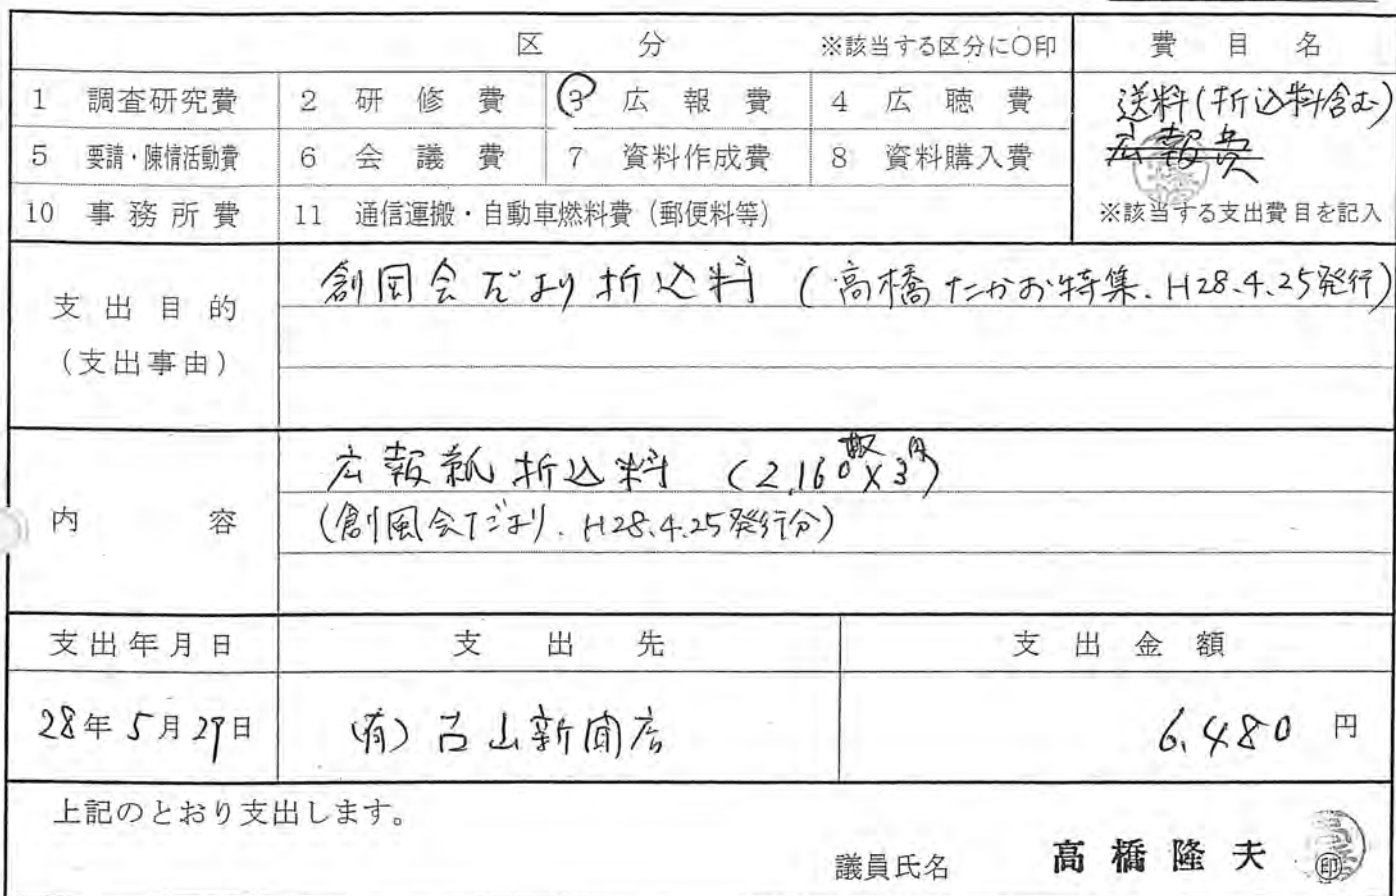 区 分 ※該当する区分に○印 費目名
1 調査研究費 2 研修費 3 広報費 4 広聴費 送料(折込料含む)
広報費
5 要請・陳情活動費 6 会議費 7 資料作成費 8 資料購入費
10 事務所費 11 通信運搬・自動車燃料費(郵便料等) ※該当する支出費目を記入
支出目的
(支出事由)
創風会だより折込料 (高橋たかお特集、H28.4.25発行)
内 容
広報紙折込料 (2,160枚×3円)
(創風会だより、H28.4.25発行分)
支出年月日 支出先 支出金額
28年5月29日 (有)古山新聞店 6,480円
上記のとおり支出します。
議員氏名 高橋隆夫 印